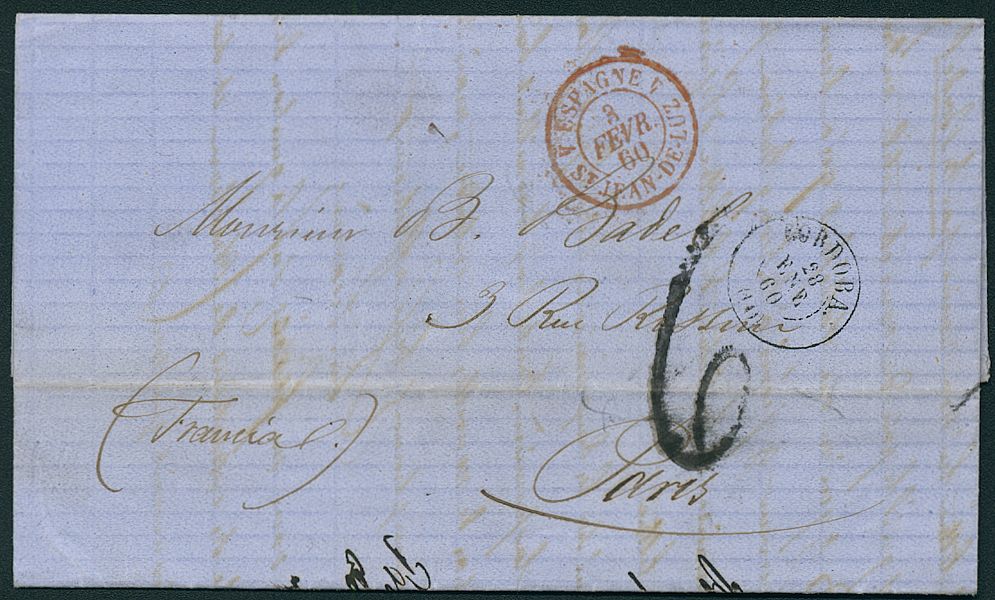 ESPAGNE
3
FEVR.
60
ST JEAN-DE-LUZ
CORDOBA
28
ENE
60
Monsieur B. Badel
3 Rue
6
(Francia)
Paris